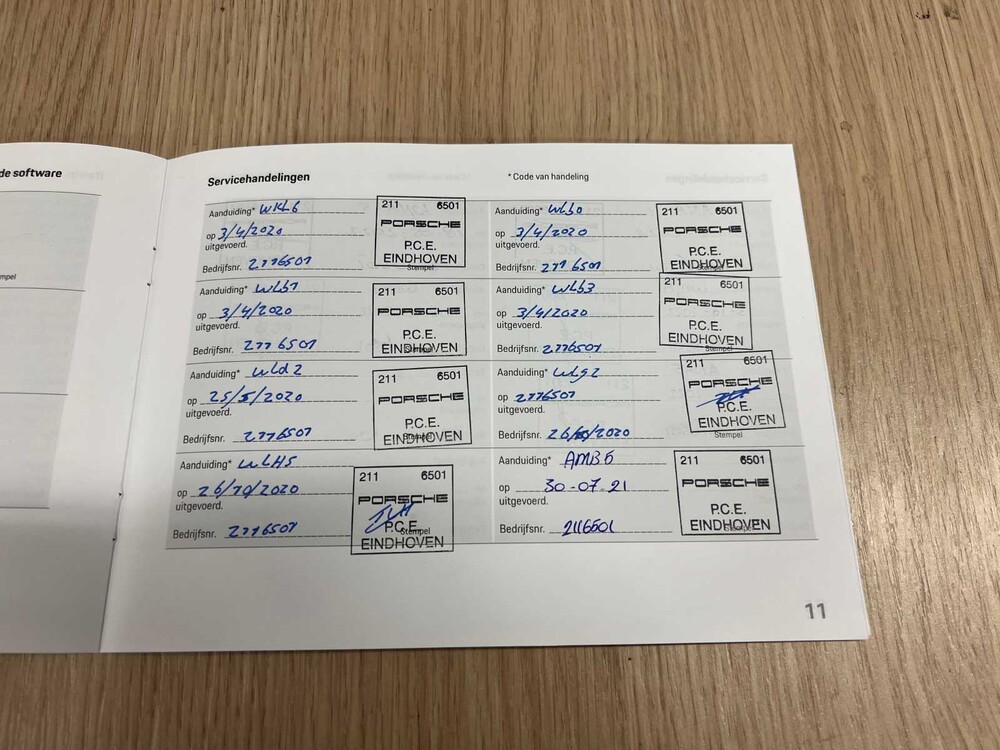 de software
mpel
Servicehandelingen
* Code van handeling
Aanduiding* WKL6
op 3/4/2020
uitgevoerd.
Bedrijfsnr. 2116501
211 6501
PORSCHE
P.C.E.
EINDHOVEN
Stempel
Aanduiding* WLb0
op 3/4/2020
uitgevoerd.
Bedrijfsnr. 2116501
211 6501
PORSCHE
P.C.E.
EINDHOVEN
Stempel
Aanduiding* WLb1
op 3/4/2020
uitgevoerd.
Bedrijfsnr. 2116501
211 6501
PORSCHE
P.C.E.
EINDHOVEN
Stempel
Aanduiding* WLb3
op 3/4/2020
uitgevoerd.
Bedrijfsnr. 2116501
211 6501
PORSCHE
P.C.E.
EINDHOVEN
Stempel
Aanduiding* WLd2
op 25/5/2020
uitgevoerd.
Bedrijfsnr. 2116501
211 6501
PORSCHE
P.C.E.
EINDHOVEN
Stempel
Aanduiding* WLg2
op 2116501
uitgevoerd.
Bedrijfsnr. 2020
211 6501
PORSCHE
P.C.E.
EINDHOVEN
Stempel
Aanduiding* WLH5
op 26/10/2020
uitgevoerd.
Bedrijfsnr. 2116501
211 6501
PORSCHE
P.C.E.
EINDHOVEN
Stempel
Aanduiding* AMB5
op 30-07.21
uitgevoerd.
Bedrijfsnr. 2116501
211 6501
PORSCHE
P.C.E.
EINDHOVEN
Stempel
11